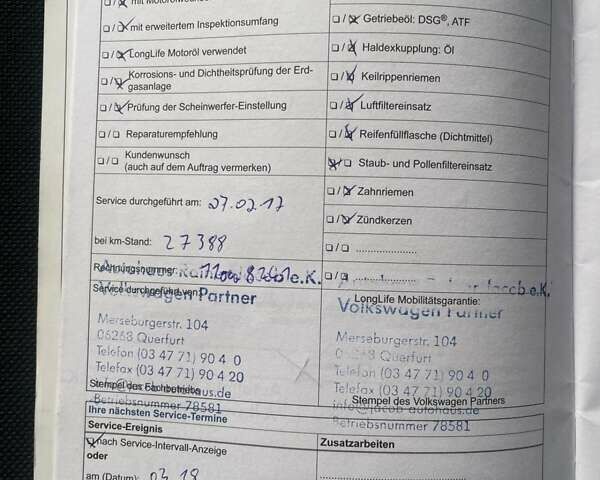 mit erweitertem Inspektionsumfang
LongLife Motoröl verwendet
Korrosions- und Dichtheitsprüfung der Erd-
gasanlage
Prüfung der Scheinwerfer-Einstellung
Reparaturempfehlung
Kundenwunsch
(auch auf dem Auftrag vermerken)
Service durchgeführt am: 27.02.17
bei km-Stand: 27388
Rechnungsnummer:
Service durchgeführt von:
Volkswagen Partner
Merseburgerstr. 104
06268 Querfurt
Telefon (03 47 71) 90 4 0
Telefax (03 47 71) 90 4 20
Stempel des Fachbetriebs
Betriebsnummer 78581
Getriebeöl: DSG®, ATF
Haldexkupplung: Öl
Keilrippenriemen
Luftfiltereinsatz
Reifenfüllflasche (Dichtmittel)
Staub- und Pollenfiltereinsatz
Zahnriemen
Zündkerzen
LongLife Mobilitätsgarantie:
Volkswagen Partner
Merseburgerstr. 104
06268 Querfurt
Telefon (03 47 71) 90 4 0
Telefax (03 47 71) 90 4 20
Stempel des Volkswagen Partners
info@jacob-autohaus.de
Betriebsnummer 78581
Ihre nächsten Service-Termine
Service-Ereignis
nach Service-Intervall-Anzeige
oder
am (Datum): 03.18
Zusatzarbeiten